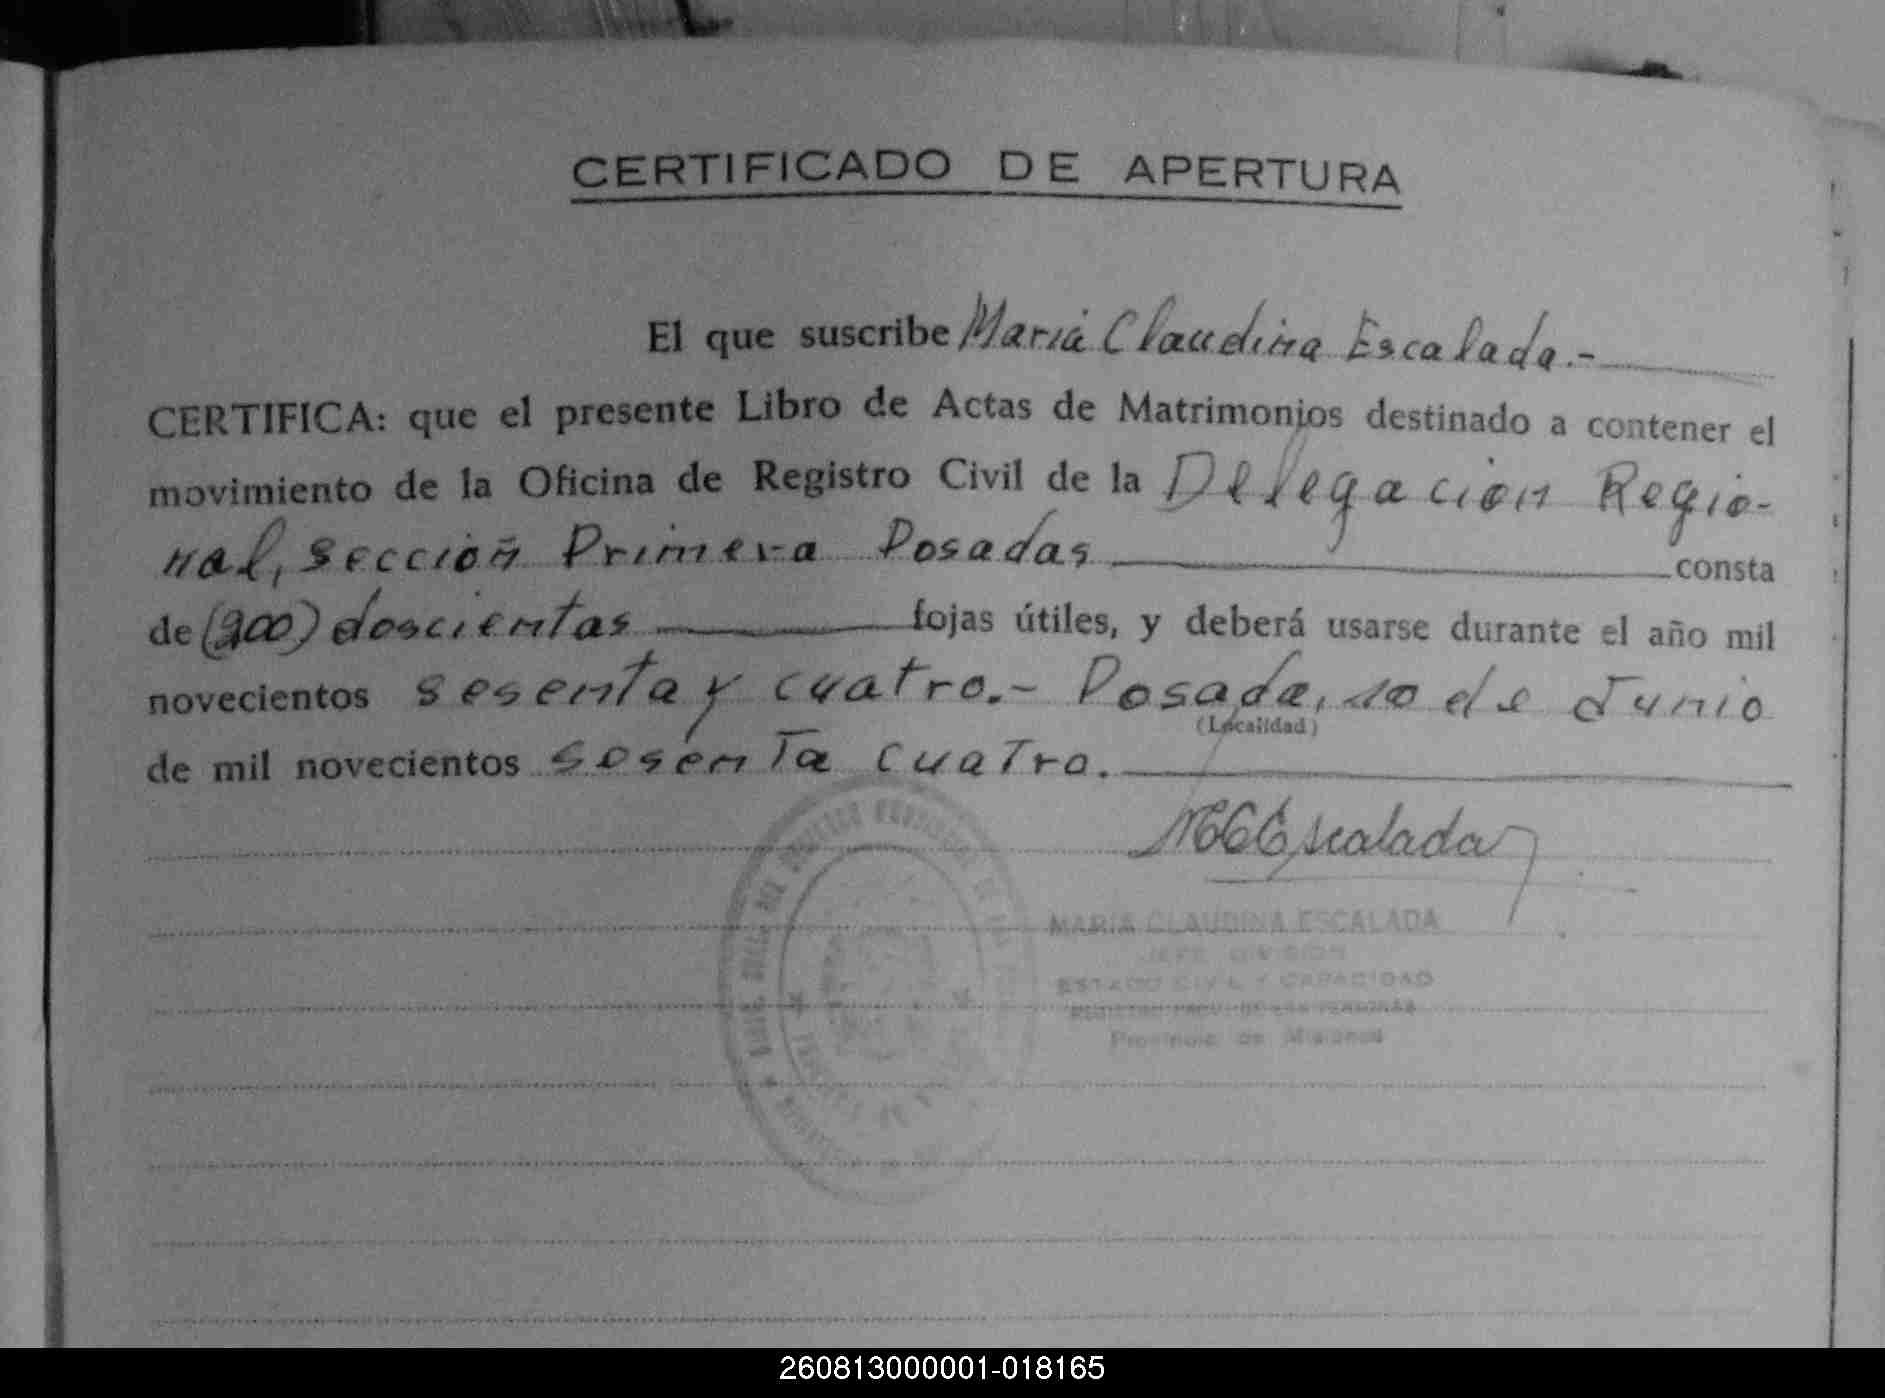 CERTIFICADO DE APERTURA
El que suscribe Maria Claudina Escalada.-
CERTIFICA: que el presente Libro de Actas de Matrimonios destinado a contener el
movimiento de la Oficina de Registro Civil de la Delegacion Regio-
nal, Sección Primera Posadas consta
de (200) doscientas fojas útiles, y deberá usarse durante el año mil
novecientos sesenta y cuatro.- Posada, 10 de Junio
(Localidad)
de mil novecientos sesenta cuatro.
MCEscalada
MARIA CLAUDINA ESCALADA
JEFE DIVISION
ESTADO CIVIL Y CAPACIDAD
REGISTRO PROV. DE LAS PERSONAS
Provincia de Misiones
260813000001-018165